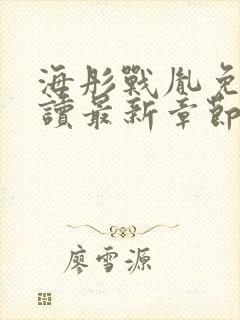 海彤戰胤免
讀最新章節
廖雪源